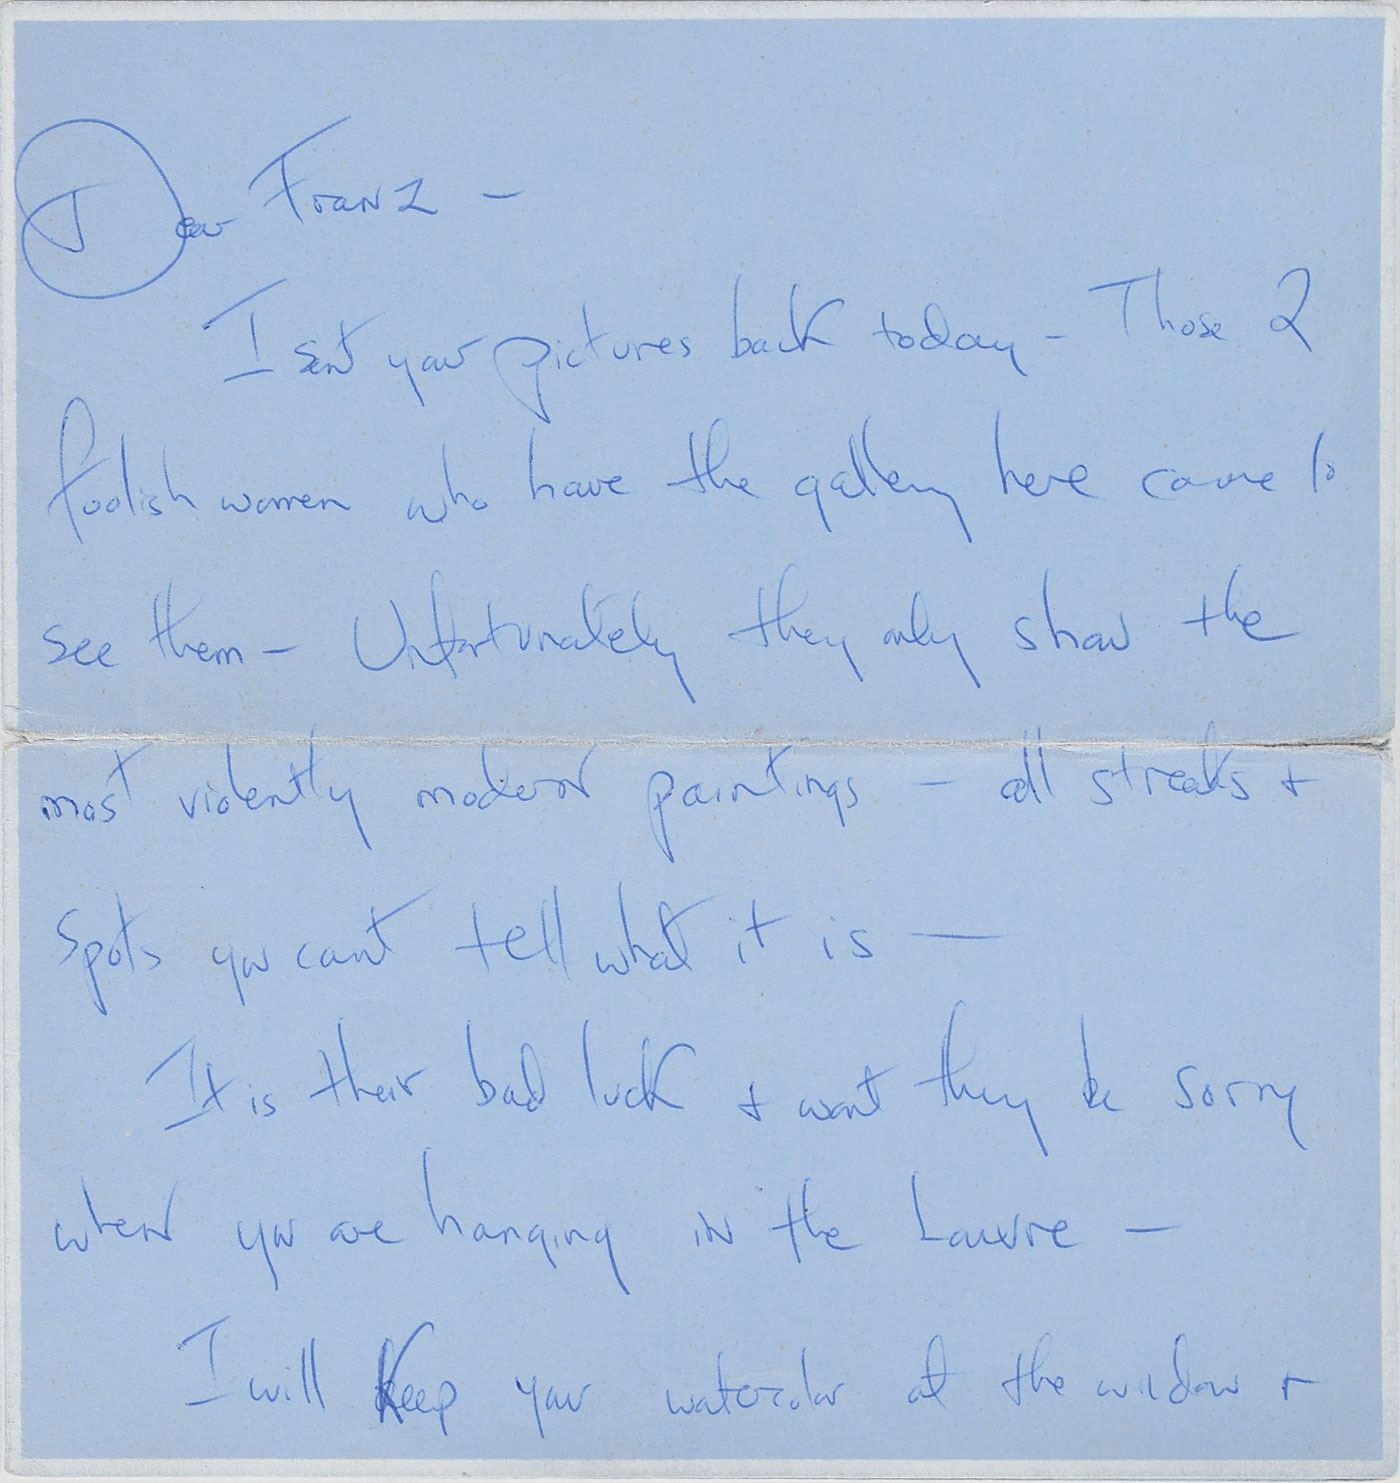 Dear Franz —
I sent your pictures back today — Those 2
foolish women who have the gallery here came to
see them — Unfortunately they only show the
most violently modern paintings — all streaks +
spots you cant tell what it is —
It is their bad luck + wont they be sorry
when you are hanging in the Louvre —
I will keep your watercolor at the window +